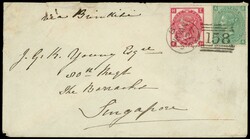 via Brindisi
J. G. B. Young Esqre
80th Regt
The Barracks
Singapore
158